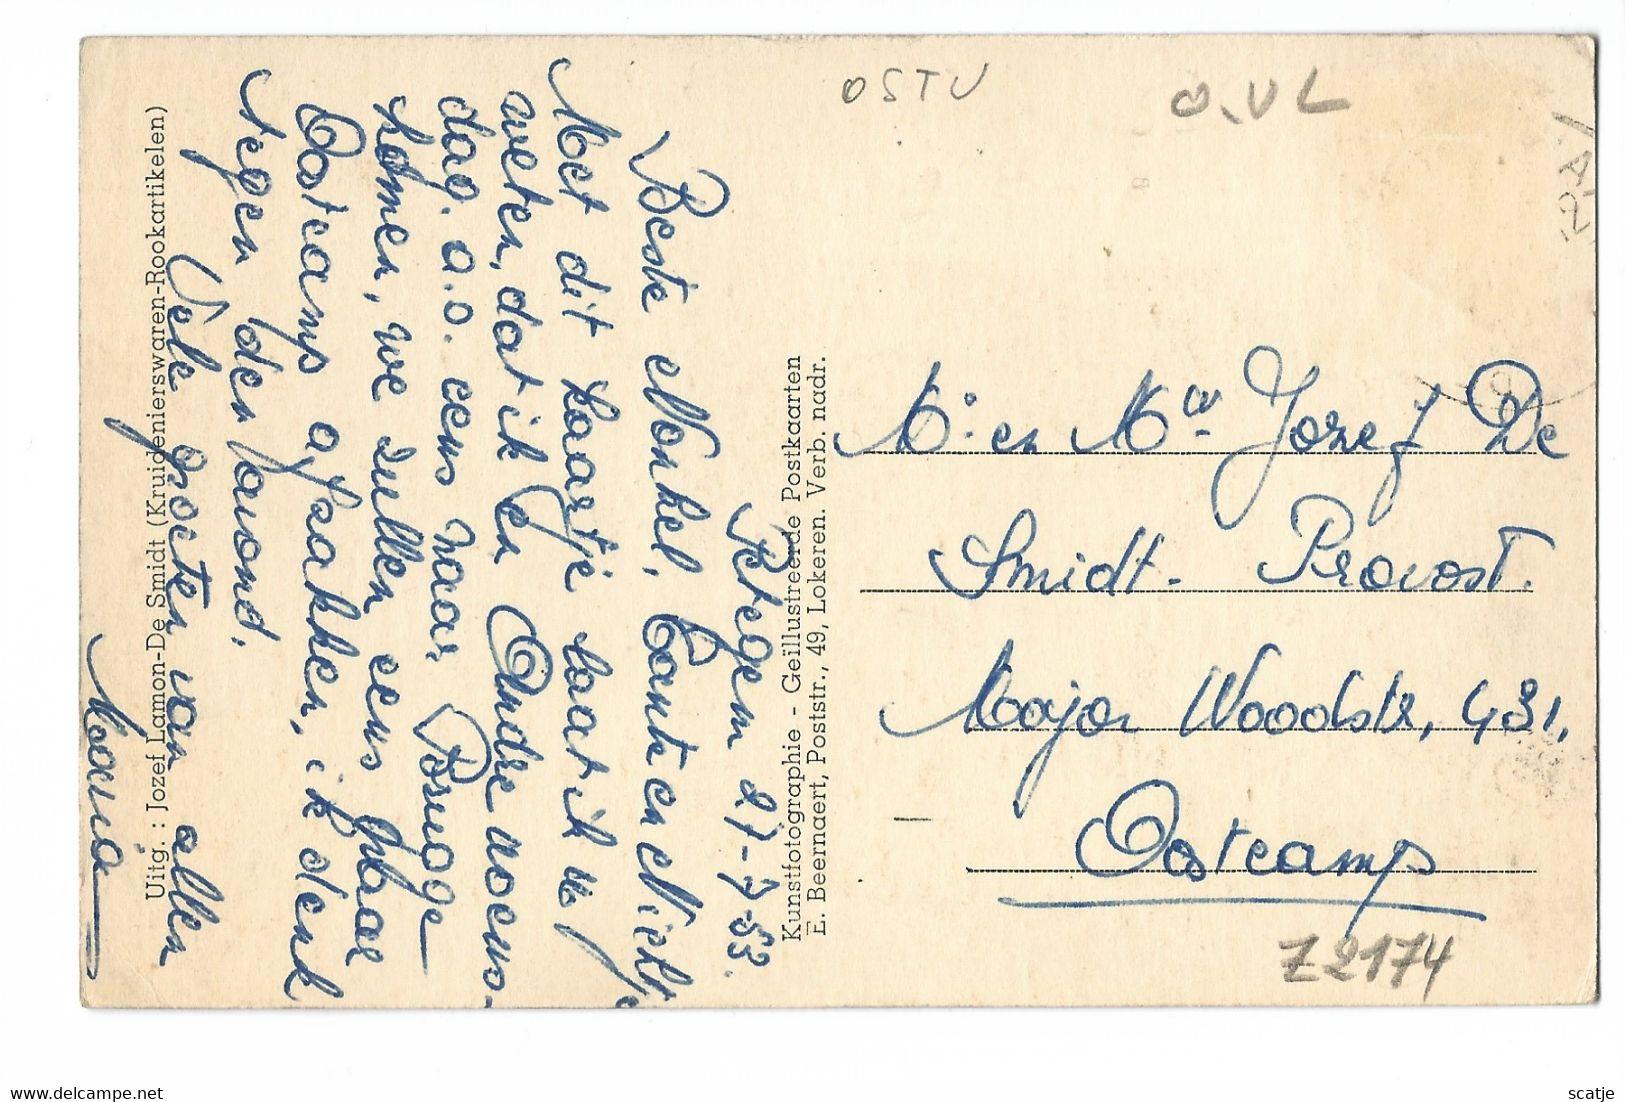 OSTU
O.VL
Petegem 27-7-53.
Beste Nonkel, Tante en Nicht,
Met dit kaartje laat ik u
weten, dat ik en Andre woens-
dag. a.s. eens naar Brugge
komen, we zullen eens naar
Oostcamp afzakken, ik denk
tegen den avond.
Vele groeten van allen
Maria
Uitg. : Jozef Lamon-De Smidt (Kruidenierswaren-Rookartikelen)
Kunstfotographie - Geïllustreerde Postkaarten
E. Beernaert, Poststr., 49, Lokeren. Verb. nadr.
Mr en Me Jozef De
Smidt - Provost.
Major Woodstr, 431.
Oostcamp
Z2174
www.delcampe.net
scatje